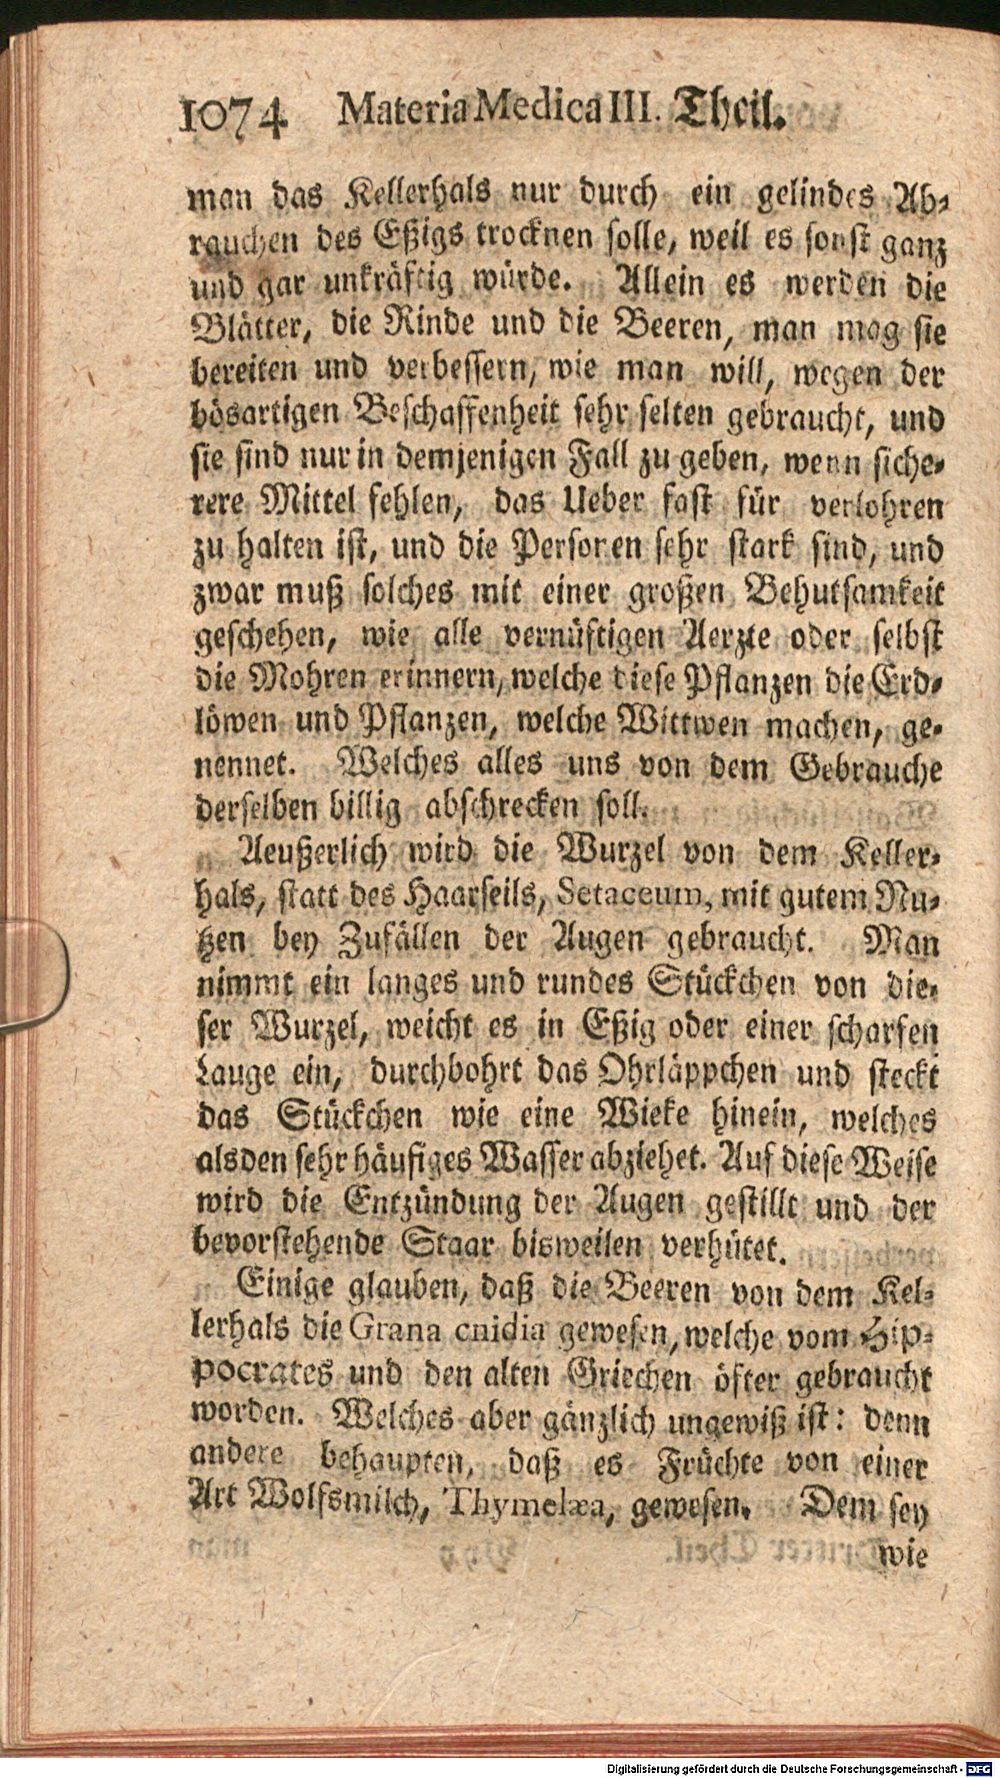 1074 Materia Medica III. Theil.
man das Kellerhals nur durch ein gelindes Ab-
rauchen des Eßigs trocknen solle, weil es sonst ganz
und gar unkräftig würde. Allein es werden die
Blätter, die Rinde und die Beeren, man mag sie
bereiten und verbessern, wie man will, wegen der
bösartigen Beschaffenheit sehr selten gebraucht, und
sie sind nur in demjenigen Fall zu geben, wenn siche-
rere Mittel fehlen, das Ueber fast für verlohren
zu halten ist, und die Personen sehr stark sind, und
zwar muß solches mit einer großen Behutsamkeit
geschehen, wie alle vernüftigen Aerzte oder selbst
die Mohren erinnern, welche diese Pflanzen die Erd-
löwen und Pflanzen, welche Wittwen machen, ge-
nennet. Welches alles uns von dem Gebrauche
derselben billig abschrecken soll.
Aeußerlich wird die Wurzel von dem Keller-
hals, statt des Haarseils, Setaceum, mit gutem Nu-
tzen bey Zufällen der Augen gebraucht. Man
nimmt ein langes und rundes Stückchen von die-
ser Wurzel, weicht es in Eßig oder einer scharfen
Lauge ein, durchbohrt das Ohrläppchen und steckt
das Stückchen wie eine Wieke hinein, welches
alsden sehr häufiges Wasser abziehet. Auf diese Weise
wird die Entzündung der Augen gestillt und der
bevorstehende Staar bisweilen verhütet.
Einige glauben, daß die Beeren von dem Kel-
lerhals die Grana cnidia gewesen, welche vom Hip-
pocrates und den alten Griechen öfter gebraucht
worden. Welches aber gänzlich ungewiß ist: denn
andere behaupten, daß es Früchte von einer
Art Wolfsmilch, Thymelæa, gewesen. Dem sey
wie
Digitalisierung gefördert durch die Deutsche Forschungsgemeinschaft - DFG